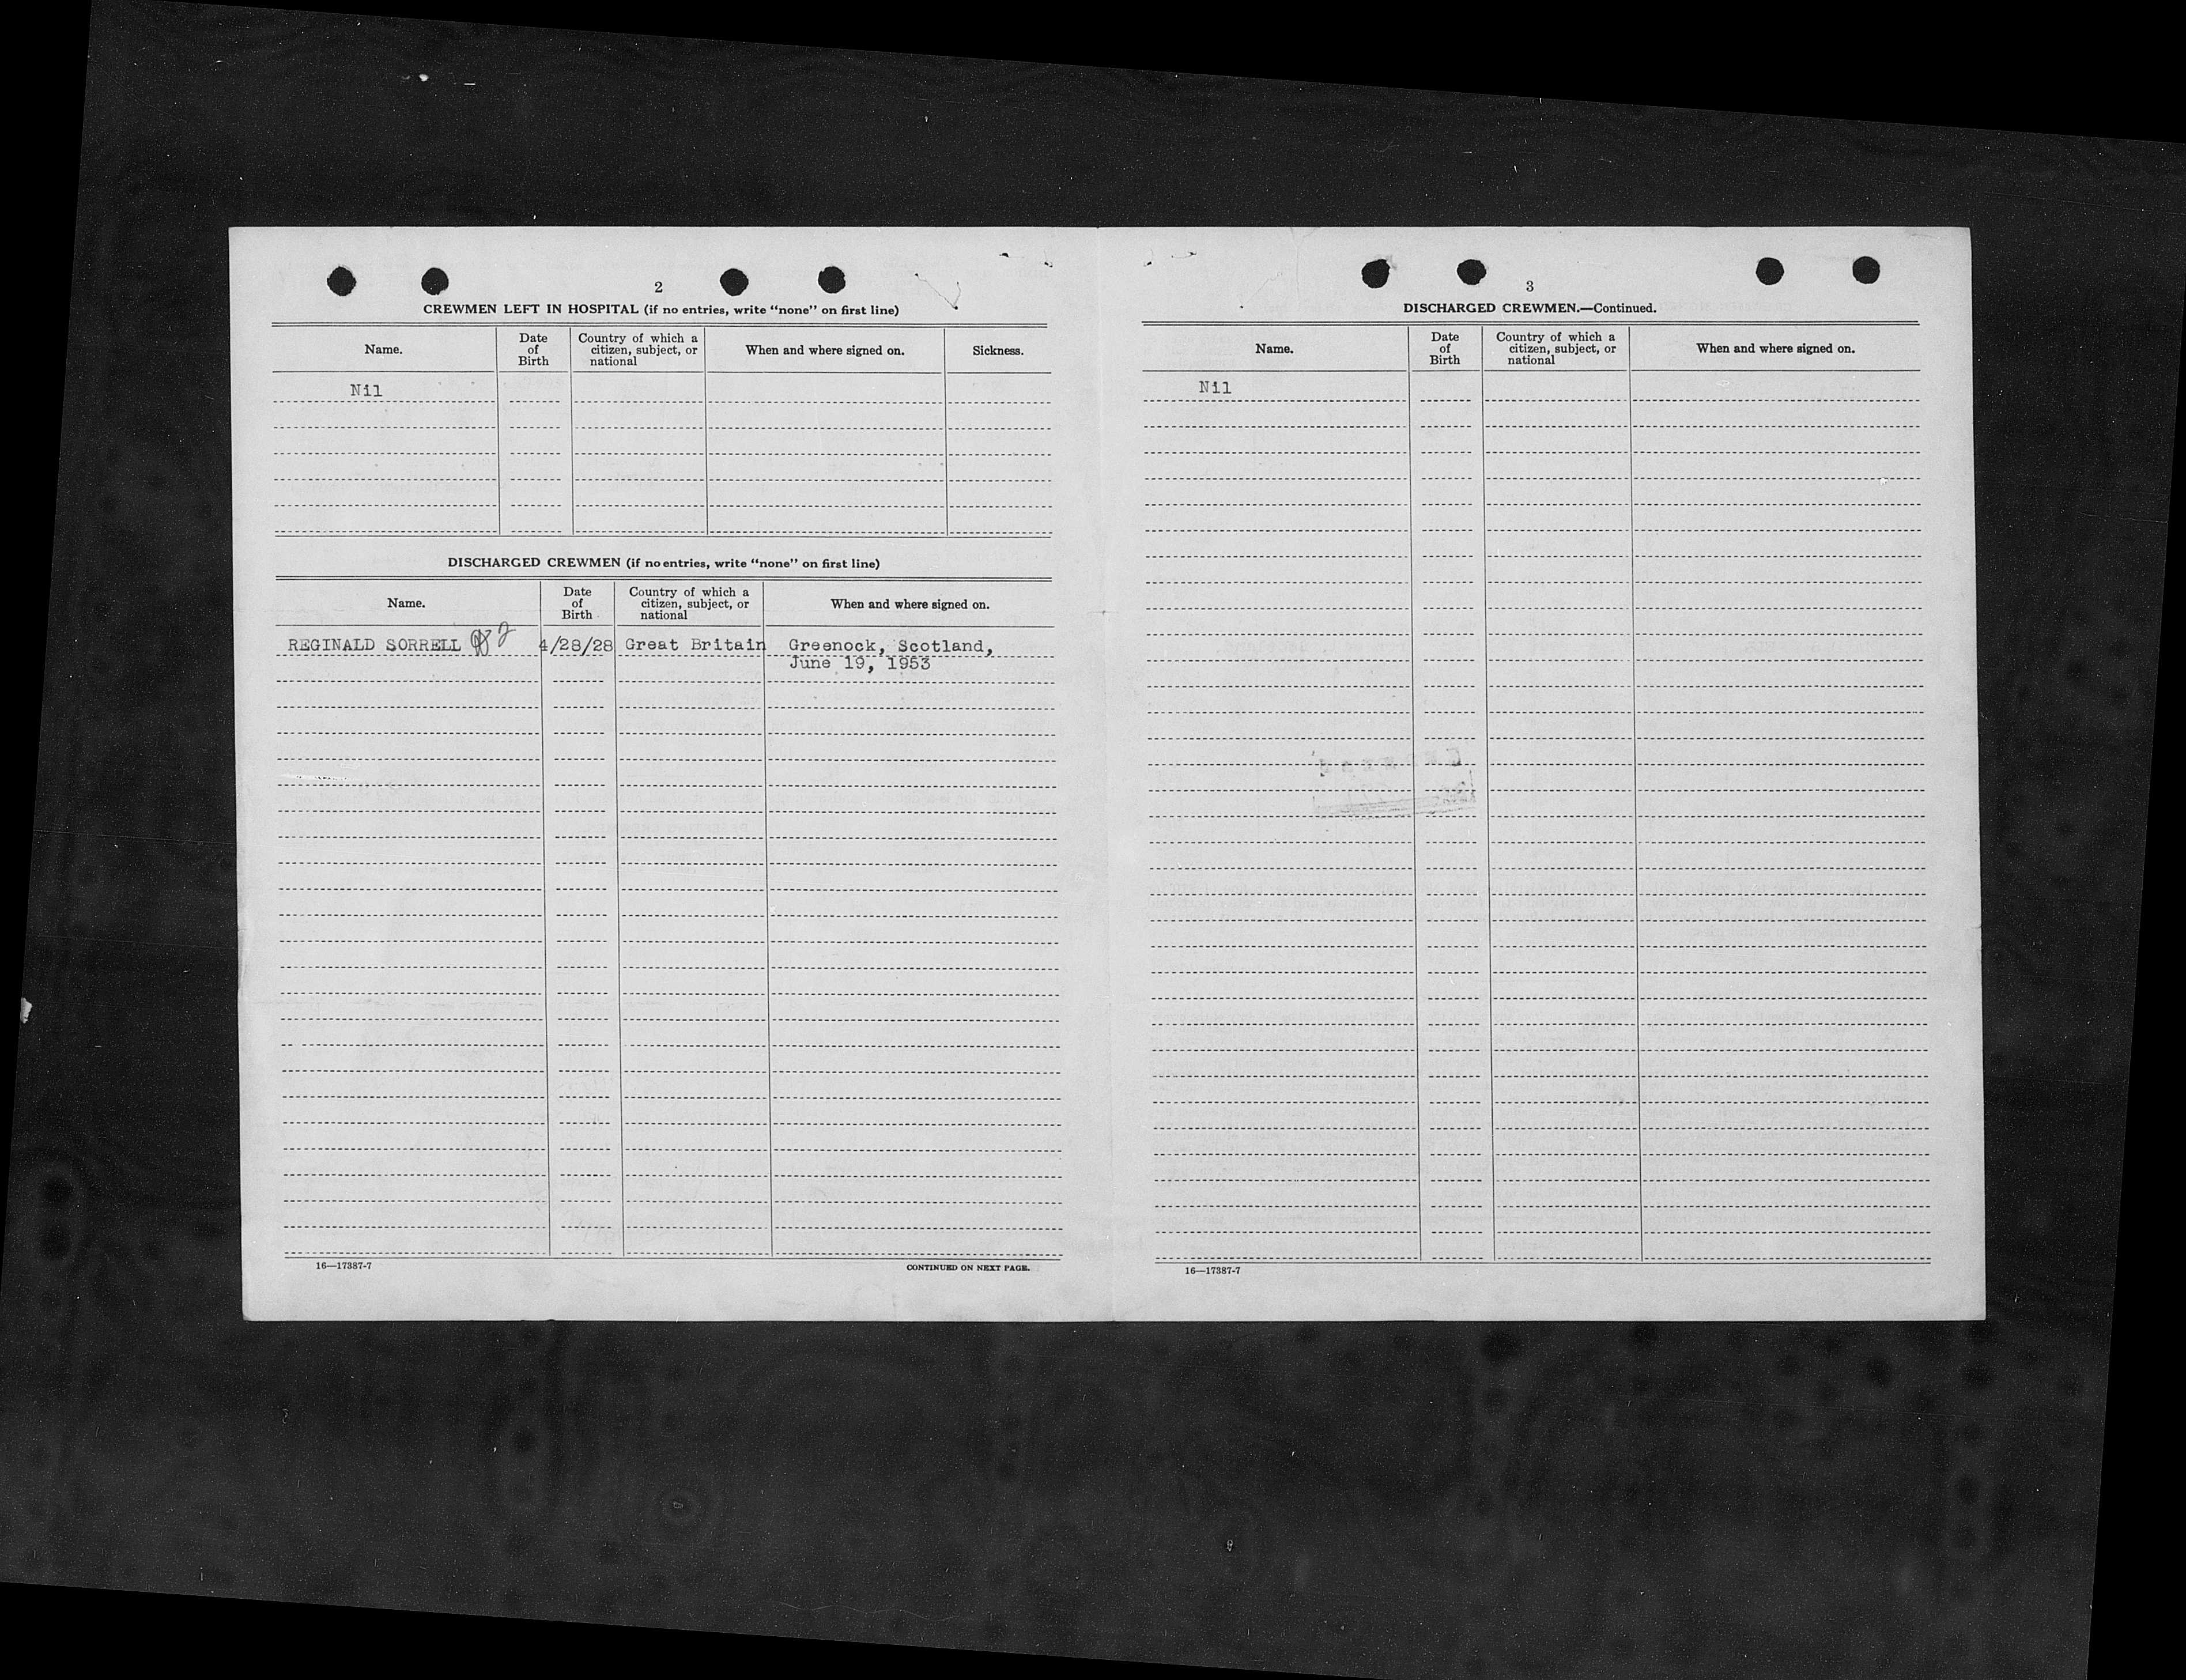 2
CREWMEN LEFT IN HOSPITAL (if no entries, write "none" on first line)
Name.
Date of Birth
Country of which a citizen, subject, or national
When and where signed on.
Sickness.
Nil
DISCHARGED CREWMEN (if no entries, write "none" on first line)
Name.
Date of Birth
Country of which a citizen, subject, or national
When and where signed on.
REGINALD SORRELL
4/28/28
Great Britain
Greenock, Scotland,
June 19, 1953
16—17387-7
CONTINUED ON NEXT PAGE.
3
DISCHARGED CREWMEN.—Continued.
Name.
Date of Birth
Country of which a citizen, subject, or national
When and where signed on.
Nil
16—17387-7